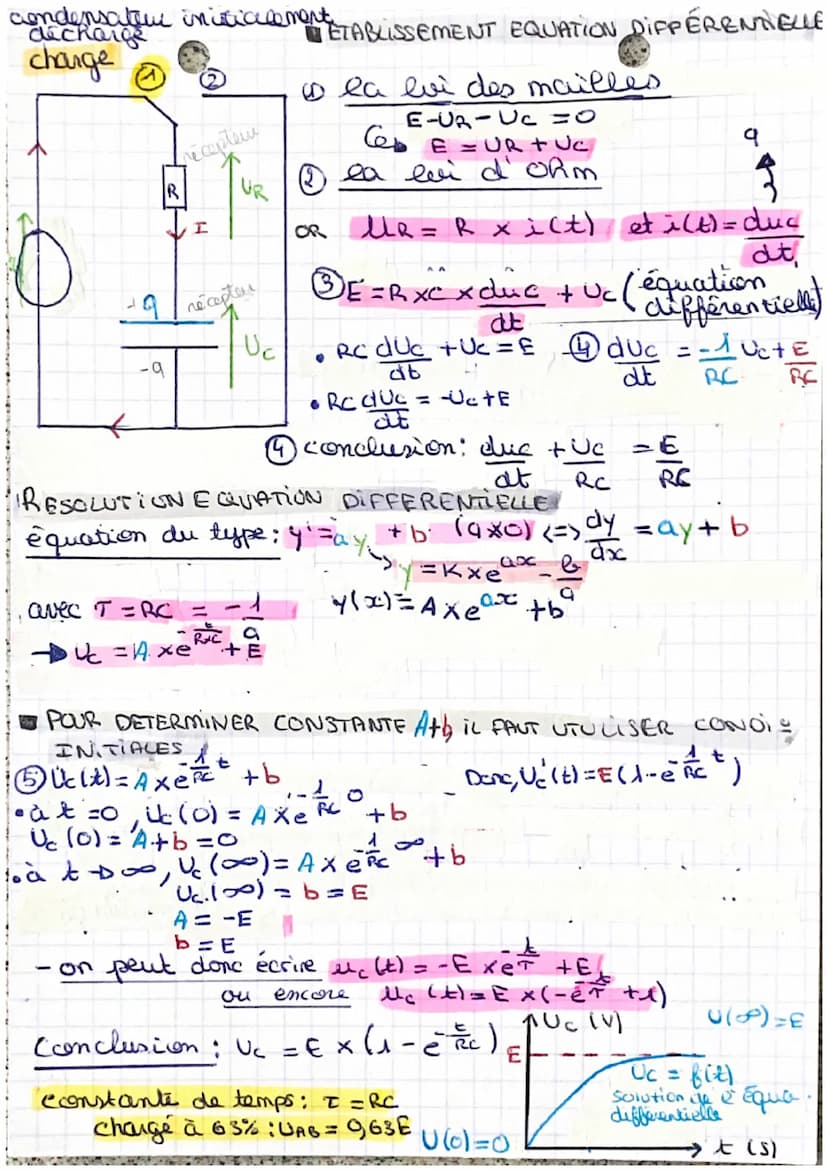 condensateur initialement
déchargé
charge
① ②
récepteur
R
UR
I
+q
récepteur
-q
Uc
■ ÉTABLISSEMENT EQUATION DIFFÉRENTIELLE
① la loi des mailles
E-UR-Uc=0
E = UR + Uc
② la loi d'Ohm
q
OR UR = R x i(t) et i(t) = duc/dt
③ E = R x c x duc/dt + Uc (équation différentielle)
• RC dUc/dt + Uc = E
④ dUc/dt = -1/RC Uc + E/RC
• RC dUc/dt = -Uc + E
④ conclusion: duc/dt + Uc/RC = E/RC
RESOLUTION EQUATION DIFFERENTIELLE
équation du type: y' = ay + b (a×0) <=> dy/dx = ay + b
y = K x e^ax - b/a
avec τ = RC = -1/a
y(x) = A x e^ax + b
→ Uc = A x e^-t/RxC + E
■ POUR DETERMINER CONSTANTE A+b IL FAUT UTULISER CONDI°
INITIALES
⑤ Uc(t) = A x e^-1/RC t + b
Donc, Uc'(t) = E(1-e^-1/RC t)
• à t=0, Uc(0) = A x e^-1/RC 0 + b
Uc(0) = A+b = 0
• à t → ∞, Uc(∞) = A x e^-1/RC ∞ + b
Uc(∞) = b = E
A = -E
b = E
- on peut donc écrire uc(t) = -E x e^-t/τ + E,
ou encore uc(t) = E x (-e^-t/τ + 1)
Conclusion : Uc = E x (1 - e^-t/RC)
constante de temps: τ = RC
chargé à 63% : UAB = 0,63E
Uc (V)
U(∞)=E
E
Uc = f(t)
solution de l'équa.
différentielle
U(0)=0
t (s)